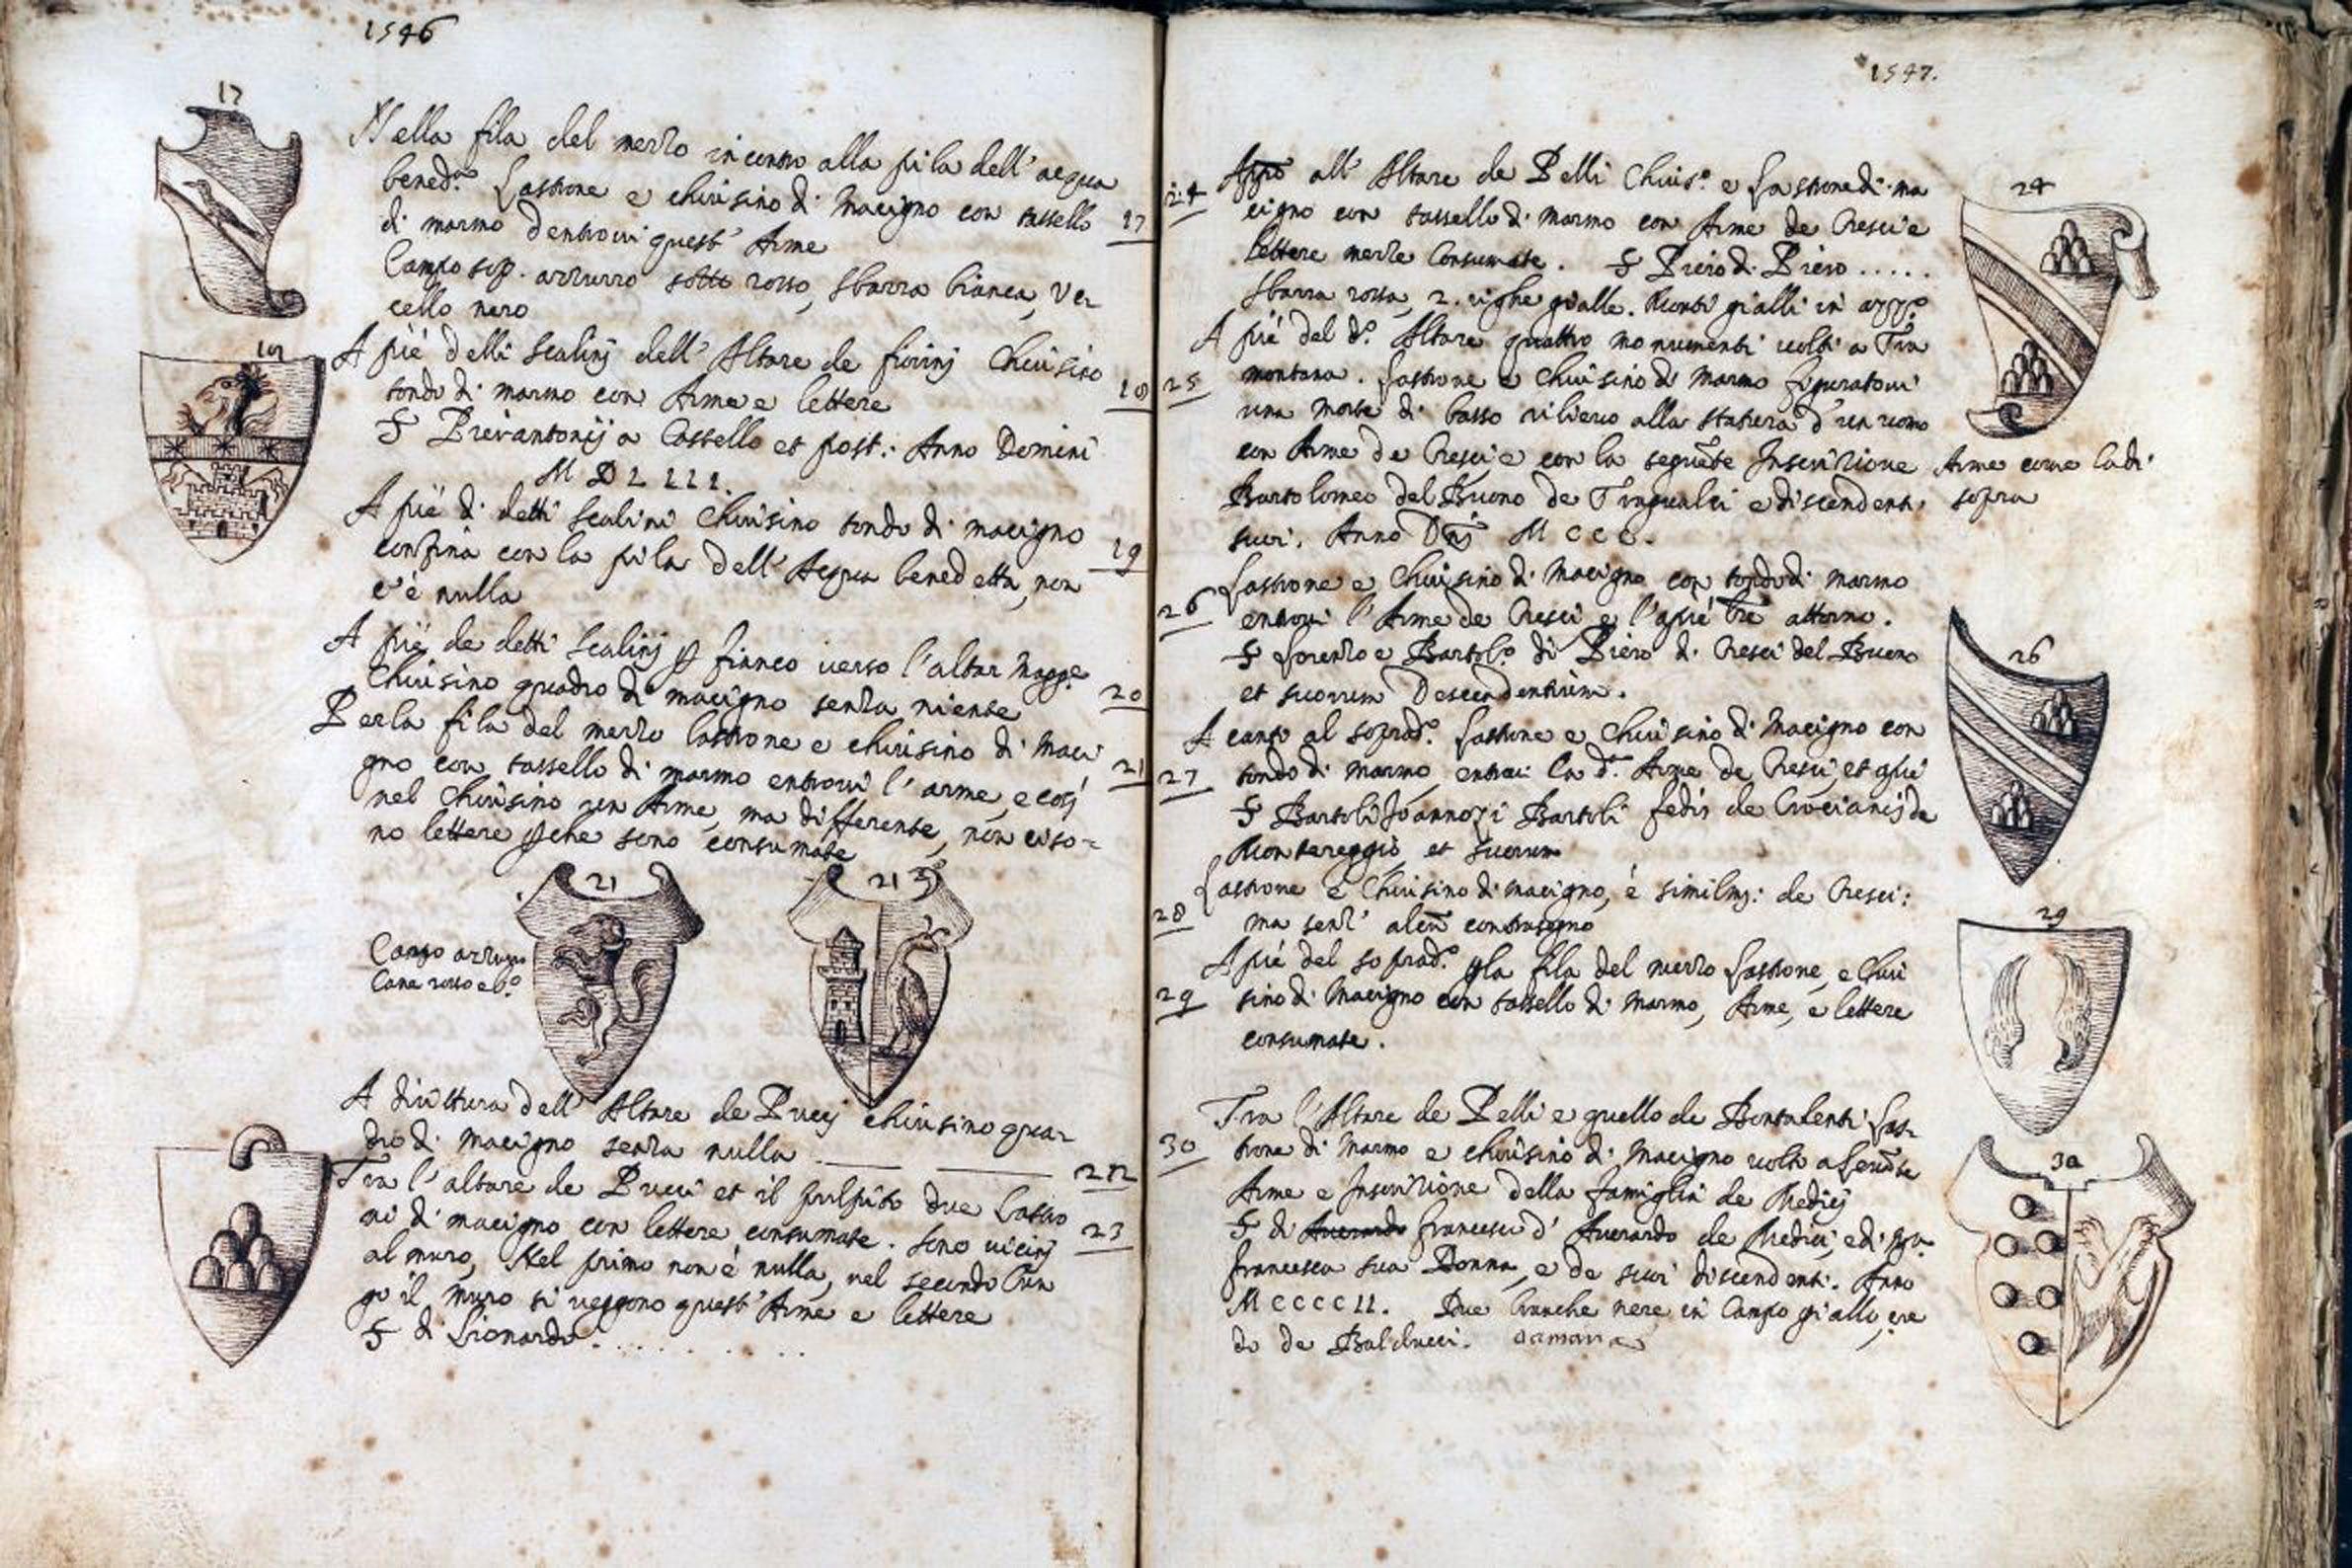 1546
17
Nella fila del mezzo incontro alla pila dell' acqua
bened.ª Lastrone e chiusino di Macigno con tassello
17
di marmo dentrovi quest' Arme
Campo sop. azzurro sotto rosso, sbarra bianca, Uc-
cello nero
18
A piè delli Scalinj dell' Altare de fiorinj Chiusino
18
tondo di marmo con Arme e lettere
S Pierantonij a Castello et post: Anno Domini
M D L I I I.
A piè di detti Scalini Chiusino tondo di macigno
19
confina con la pila dell' Acqua benedetta, non
c'è nulla
A piè de detti Scalinj p fianco verso l'altar Magg.e
Chiusino quadro di macigno senza niente
20
Per la fila del mezzo lastrone e chiusino di Maci
21
gno con tassello di marmo entrovi l' arme, e così
nel Chiusino un Arme, ma differente, non ci so=
no lettere pche sono consumate
21
21 2º
Campo azzurro
Cane rosso e b.º
A dirittura dell' Altare de Puccj chiusino qua-
dro di macigno senza nulla
22
Tra l' altare de Pucci et il pulpito due lastro
ni di macigno con lettere consumate. Sono vicinj
23
al muro, Nel primo non è nulla, nel secondo lun
go il muro si veggono quest' Arme e lettere
S di Lionardo. . . . . . . .
1547.
24
App.º all' Altare de Pelli Chius.º e Lastrone di ma
24
cigno con tassello di marmo con Arme de Cresci e
lettere mezze Consumate. S Piero di Piero .....
Sbarra rossa, 2. righe gialle. Monti gialli in azz.º
A piè del d.º Altare quattro monumenti volti a Tra
25
montana. Lastrone e Chiusino di Marmo figuratovi
una morte di basso rilievo alla statura d'un uomo
con Arme de Cresci e con la seguẽte Inscrizione
Arme come la di
sopra
Bartolomeo del Buono de e discendenti
suoi. Anno Dñj M C C C.
Lastrone e Chiusino di Macigno con tondo di marmo
26
entrovi l' Arme de Cresci e l'apiè lr̃e attorno.
26
S Lorenzo e Bartol.º di Piero di Cresci del Buono
et suorum Descendentium.
A canto al soprad.º Lastrone e Chiusino di Macigno con
27
tondo di marmo entrovi la d.ª Arme de Cresci, et apiè
S Bartoli Joannozi Bartoli fedis de Crociani de
Montereggio et suorum
Lastrone e Chiusino di macigno, è similm: de Cresci:
28
ma senz' alcũ contrasegno
29
A piè del soprad.º p la fila del mezzo Lastrone, e Chiu
29
sino di Macigno con tassello di marmo, Arme, e lettere
consumate.
Tra l' Altare de Pelli e quello de Bontalenti Las-
30
trone di Marmo e chiusino di Macigno volto a levãte
30
Arme e Inscrizione della famiglia de Medicj
S di Averardo francesco d' Averardo de Medici, e di
francesca sua Donna, e de suoi discendenti. Anno
M C C C C I I. Due branche nere in Campo giallo, cre
do de Balducci.